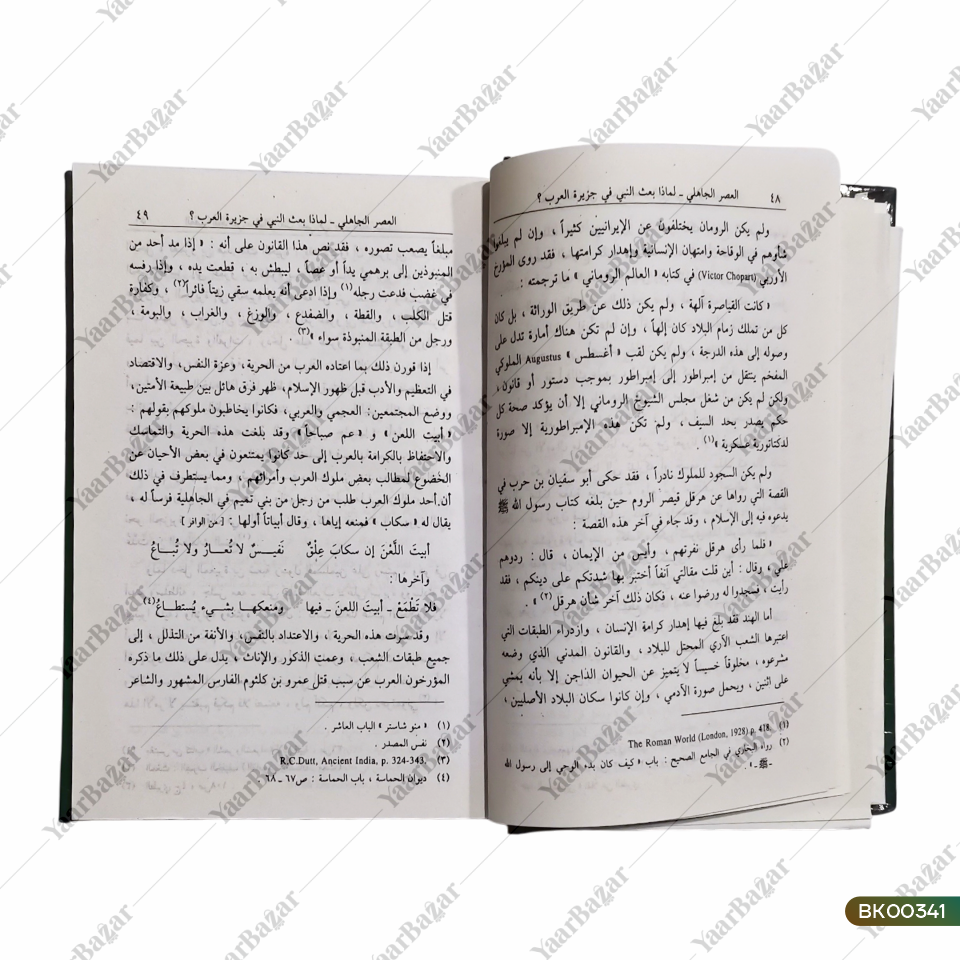 ٤٨ العصر الجاهلي ـ لماذا بعث النبي في جزيرة العرب ؟
ولم يكن الرومان يختلفون عن الإيرانيين كثيراً ، وإن لم يبلغوا
شأوهم في الوقاحة وامتهان الإنسانية وإهدار كرامتها ، فقد روى المؤرخ
الأوربي (Victor Chopart) في كتابه « العالم الروماني » ما ترجمته :
« كانت القياصرة آلهة ، ولم يكن ذلك عن طريق الوراثة ، بل كان
كل من تملك زمام البلاد كان إلهاً ، وإن لم تكن هناك أمارة تدل على
وصوله إلى هذه الدرجة ، ولم يكن لقب « أغسطس » Augustus الملوكي
المفخم ينتقل من إمبراطور إلى إمبراطور بموجب دستور أو قانون ،
ولكن لم يكن من شغل مجلس الشيوخ الروماني إلا أن يؤكد صحة كل
حكم يصدر بحد السيف ، ولم تكن هذه الإمبراطورية إلا صورة
لدكتاتورية عسكرية »(١) .
ولم يكن السجود للملوك نادراً ، فقد حكى أبو سفيان بن حرب في
القصة التي رواها عن هرقل قيصر الروم حين بلغه كتاب رسول الله ﷺ
يدعوه فيه إلى الإسلام ، وقد جاء في آخر هذه القصة :
« فلما رأى هرقل نفرتهم ، وأيس من الإيمان ، قال : ردوهم
علي ، وقال : أين قلت مقالتي آنفاً أختبر بها شدتكم على دينكم ، فقد
رأيت ، فسجدوا له ورضوا عنه ، فكان ذلك آخر شأن هرقل(٢) » .
أما الهند فقد بلغ فيها إهدار كرامة الإنسان ، وازدراء الطبقات التي
اعتبرها الشعب الآري المحتل للبلاد ، والقانون المدني الذي وضعه
مشرعوه ، مخلوقاً خسيساً لا يتميز عن الحيوان الداجن إلا بأنه يمشي
على اثنين ، ويحمل صورة الآدمي ، وإن كانوا سكان البلاد الأصليين ،
(١) The Roman World (London, 1928) p. 418.
(٢) رواه البخاري في الجامع الصحيح : باب « كيف كان بدء الوحي إلى رسول الله
ـ ﷺ ـ » .
العصر الجاهلي ـ لماذا بعث النبي في جزيرة العرب ؟ ٤٩
مبلغاً يصعب تصوره ، فقد نص هذا القانون على أنه : « إذا مد أحد من
المنبوذين إلى برهمي يداً أو عصاً ، ليبطش به ، قطعت يده ، وإذا رفسه
في غضب فدعت رجله(١) وإذا ادعى أنه يعلمه سقي زيتاً فائراً(٢) ، وكفارة
قتل الكلب ، والقطة ، والضفدع ، والوزغ ، والغراب ، والبومة ،
ورجل من الطبقة المنبوذة سواء »(٣) .
إذا قورن ذلك بما اعتاده العرب من الحرية ، وعزة النفس، والاقتصاد
في التعظيم والأدب قبل ظهور الإسلام، ظهر فرق هائل بين طبيعة الأمتين،
ووضع المجتمعين : العجمي والعربي، فكانوا يخاطبون ملوكهم بقولهم :
« أبيت اللعن » و « عم صباحاً » وقد بلغت هذه الحرية والتماسك
والاحتفاظ بالكرامة بالعرب إلى حد كانوا يمتنعون في بعض الأحيان عن
الخضوع لمطالب بعض ملوك العرب وأمرائهم ، ومما يستطرف في ذلك
أن أحد ملوك العرب طلب من رجل من بني تميم في الجاهلية فرساً له ،
يقال له « سكاب » فمنعه إياها ، وقال أبياتاً أولها : [من الوافر]
أبيتَ اللَّعْنَ إن سكابَ عِلْقٌ نَفيسٌ لا تُعـارُ ولا تُبـاعُ
وآخرها :
فلا تَطْمَعْ ـ أبيتَ اللعنَ ـ فيها ومنعكهـا بشـيء يُستطـاعُ(٤)
وقد سرت هذه الحرية ، والاعتداد بالنفس، والأنفة من التذلل ، إلى
جميع طبقات الشعب ، وعمت الذكور والإناث ، يدل على ذلك ما ذكره
المؤرخون العرب عن سبب قتل عمرو بن كلثوم الفارس المشهور والشاعر
(١) « منو شاستر » الباب العاشر .
(٢) نفس المصدر .
(٣) R.C.Dutt, Ancient India, p. 324-343.
(٤) ديوان الحماسة ، باب الحماسة : ص٦٧ ـ ٦٨ .
YaarBazar
BK00341